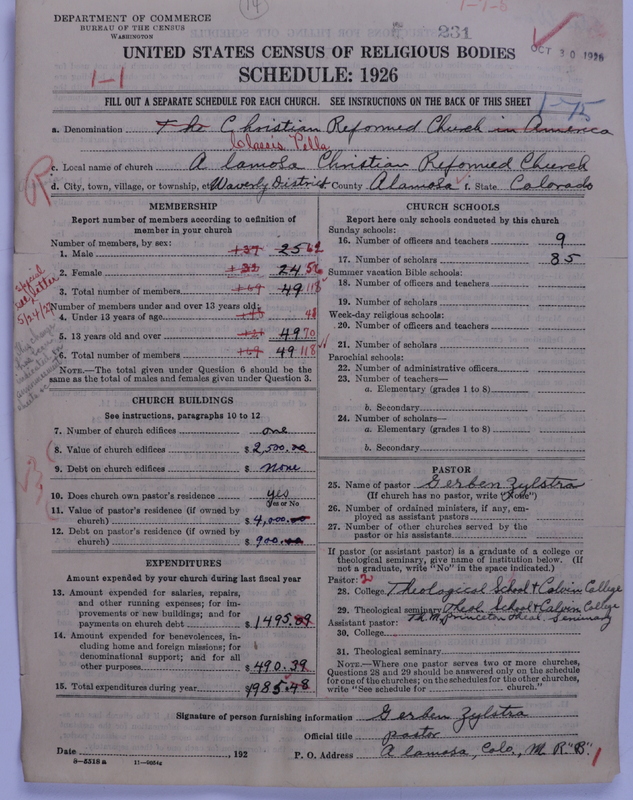 DEPARTMENT OF COMMERCE
BUREAU OF THE CENSUS
WASHINGTON
14
1-7-8
231
OCT 30 1926
UNITED STATES CENSUS OF RELIGIOUS BODIES
SCHEDULE: 1926
1-1
FILL OUT A SEPARATE SCHEDULE FOR EACH CHURCH. SEE INSTRUCTIONS ON THE BACK OF THIS SHEET
1-75
a. Denomination The Christian Reformed Church in America
Classis Pella
c. Local name of church Alamosa Christian Reformed Church
d. City, town, village, or township, etc Waverly District County Alamosa f. State Colorado
R
MEMBERSHIP
Report number of members according to definition of
member in your church
Number of members, by sex:
1. Male 25 62
2. Female 24 56
3. Total number of members 49 118
Number of members under and over 13 years old:
4. Under 13 years of age 48
5. 13 years old and over 49 70
6. Total number of members 49 118
NOTE.—The total given under Question 6 should be the
same as the total of males and females given under Question 3.
Special
see letter
5/24/27
CHURCH BUILDINGS
See instructions, paragraphs 10 to 12
7. Number of church edifices one
8. Value of church edifices $ 2,500.00
9. Debt on church edifices $ none
10. Does church own pastor's residence yes
Yes or No
11. Value of pastor's residence (if owned by
church) $ 4,000.00
12. Debt on pastor's residence (if owned by
church) $ 900.00
EXPENDITURES
Amount expended by your church during last fiscal year
13. Amount expended for salaries, repairs,
and other running expenses; for im-
provements or new buildings; and for
payments on church debt $ 1495.09
14. Amount expended for benevolences, in-
cluding home and foreign missions; for
denominational support; and for all
other purposes $ 490.39
15. Total expenditures during year $ 1985.48
CHURCH SCHOOLS
Report here only schools conducted by this church
Sunday schools:
16. Number of officers and teachers 9
17. Number of scholars 85
Summer vacation Bible schools:
18. Number of officers and teachers
19. Number of scholars
Week-day religious schools:
20. Number of officers and teachers
21. Number of scholars
Parochial schools:
22. Number of administrative officers
23. Number of teachers—
a. Elementary (grades 1 to 8)
b. Secondary
24. Number of scholars—
a. Elementary (grades 1 to 8)
b. Secondary
PASTOR
25. Name of pastor Gerben Zylstra
(If church has no pastor, write "None")
26. Number of ordained ministers, if any, em-
ployed as assistant pastors
27. Number of other churches served by the
pastor or his assistants
If pastor (or assistant pastor) is a graduate of a college or
theological seminary, give name of institution below. (If
not a graduate, write "No" in the space indicated.)
Pastor: 2
28. College Theological School + Calvin College
29. Theological seminary Theol. School + Calvin College
Assistant pastor: Th. M. Princeton Theol. Seminary
30. College
31. Theological seminary
NOTE.—Where one pastor serves two or more churches,
Questions 28 and 29 should be answered only on the schedule
for one of the churches; on the schedules for the other churches,
write "See schedule for church."
Signature of person furnishing information Gerben Zylstra
Official title pastor
Date , 192 P. O. Address Alamosa, Colo., M. R. "B"
8-5518 a 11-9054c